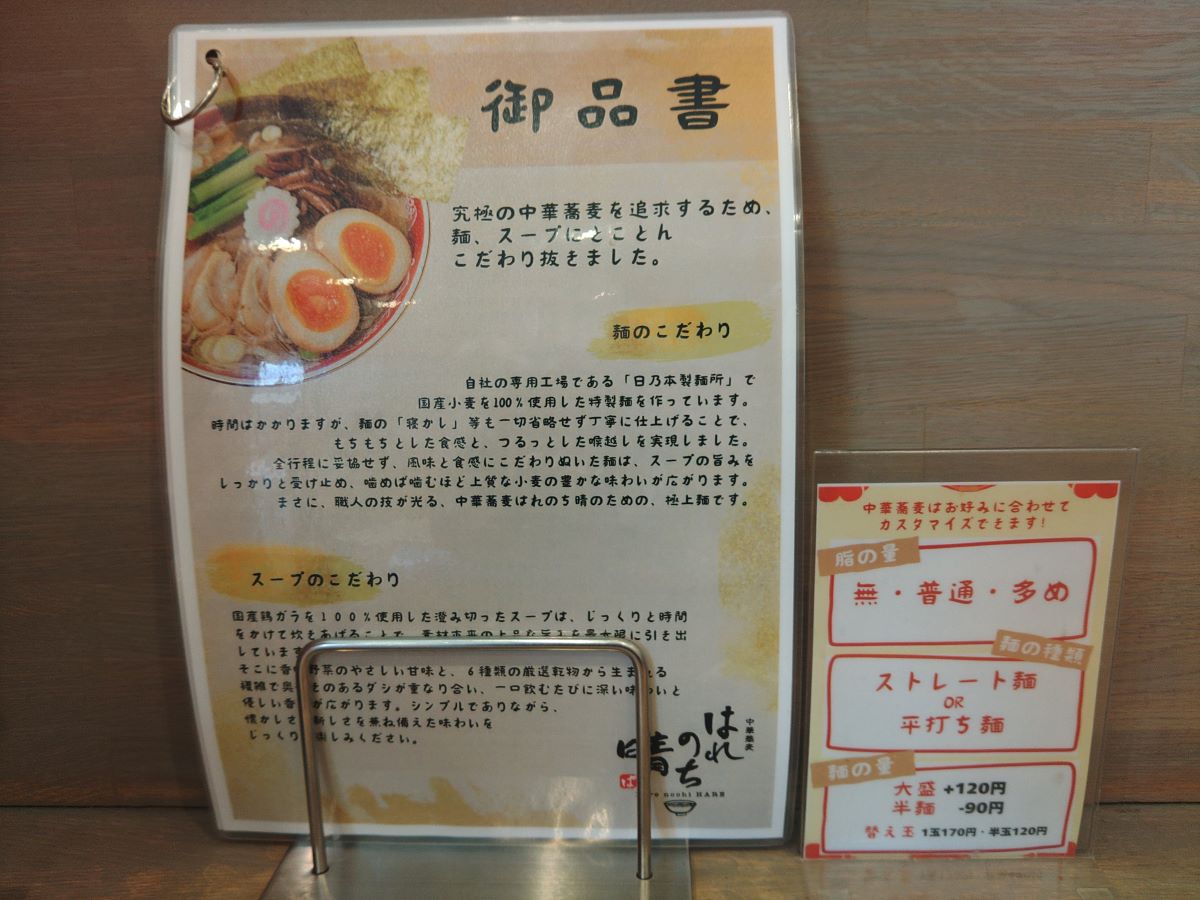 御品書
究極の中華蕎麦を追求するため、
麺、スープにとことん
こだわり抜きました。
麺のこだわり
自社の専用工場である「日乃本製麺所」で
国産小麦を100%使用した特製麺を作っています。
時間はかかりますが、麺の「寝かし」等も一切省略せず丁寧に仕上げることで、
もちもちとした食感と、つるっとした喉越しを実現しました。
全行程に妥協せず、風味と食感にこだわりぬいた麺は、スープの旨みを
しっかりと受け止め、噛めば噛むほど上質な小麦の豊かな味わいが広がります。
まさに、職人の技が光る、中華蕎麦はれのち晴のための、極上麺です。
スープのこだわり
国産鶏ガラを100%使用した澄み切ったスープは、じっくりと時間
をかけて炊きあげることで、素材本来の上品な旨みを最大限に引き出
しています
そこに香味野菜のやさしい甘味と、6種類の厳選乾物から生まれる
複雑で奥 そのあるダシが重なり合い、一口飲むたびに深い味わいと
優しい香 が広がります。シンプルでありながら、
懐かしさ 新しさを兼ね備えた味わいを
じっくり 楽しみください。
中華蕎麦
はれ
のち
晴
nochi HARE
中華蕎麦はお好みに合わせて
カスタマイズできます!
脂の量
無・普通・多め
麺の種類
ストレート麺
OR
平打ち麺
麺の量
大盛 +120円
半麺 -90円
替え玉 1玉170円・半玉120円